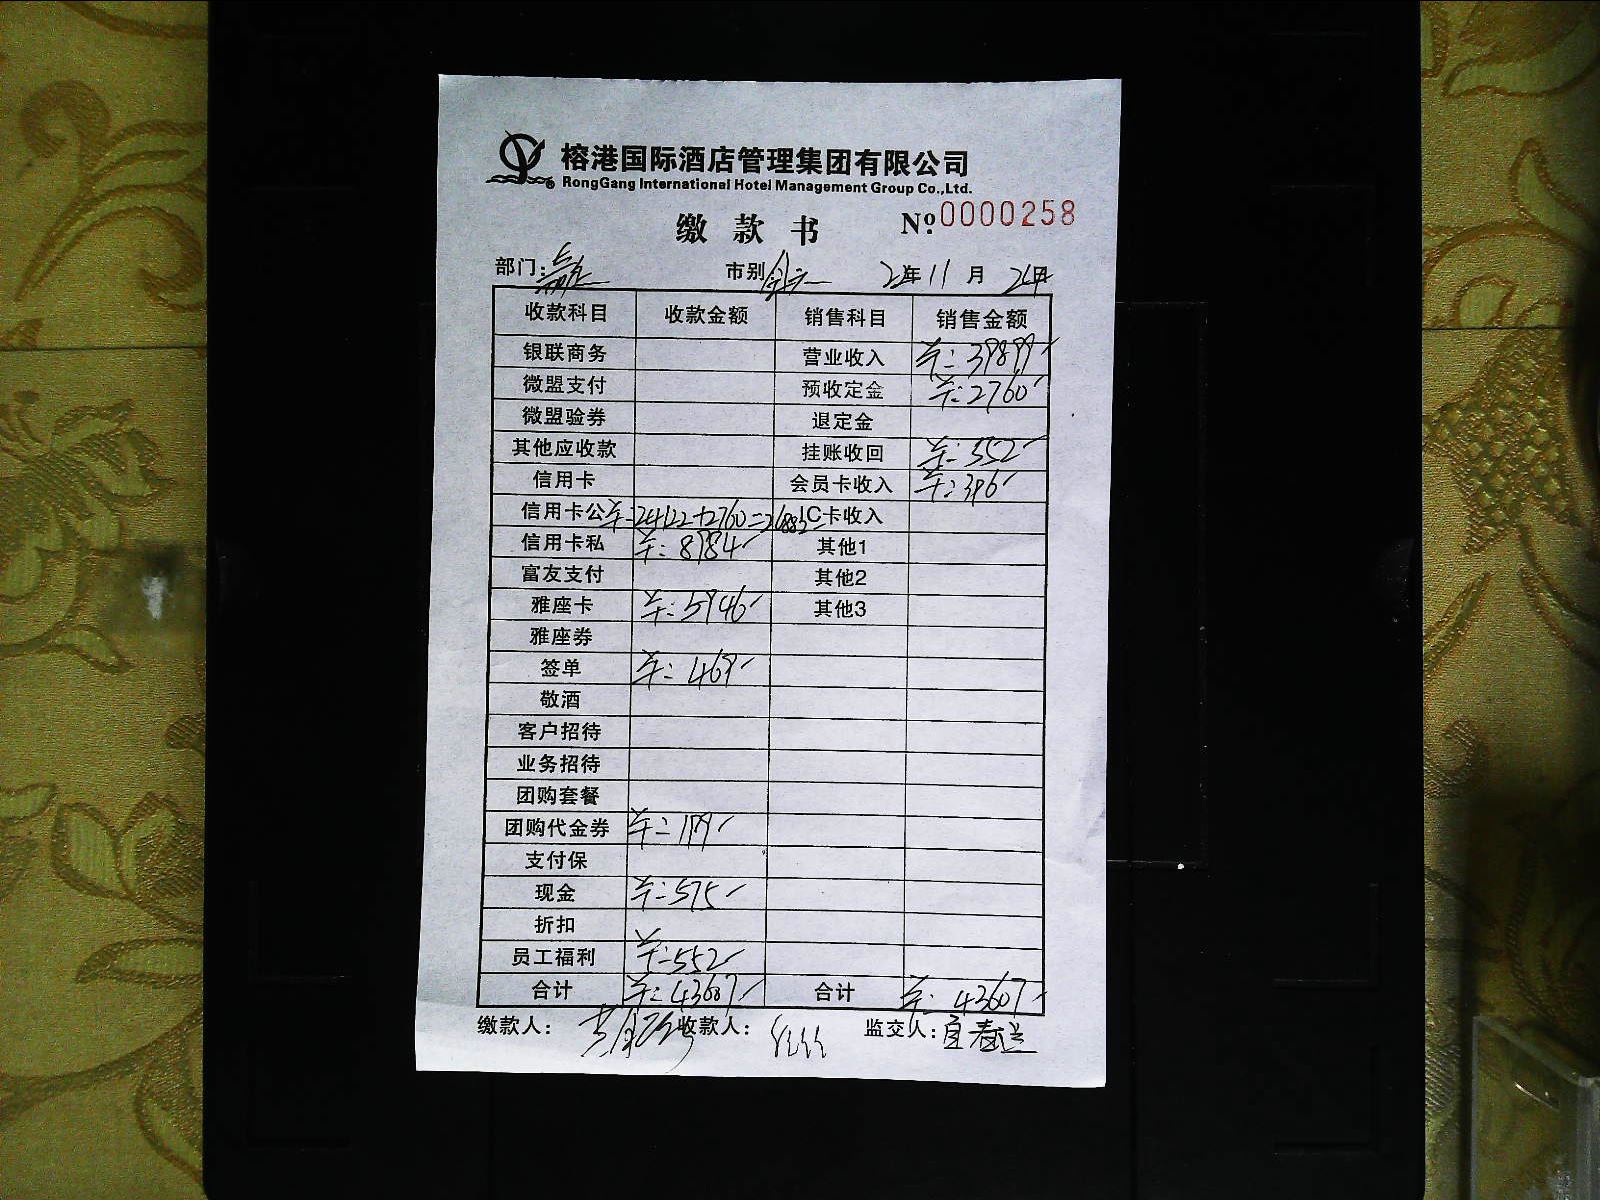 榕港国际酒店管理集团有限公司
RongGang International Hotel Management Group Co.,Ltd.
缴款书 №:0000258
部门: 市别 22年11月24日
收款科目 收款金额 销售科目 销售金额
银联商务 营业收入 ¥:39899
微盟支付 预收定金 ¥:2760
微盟验券 退定金
其他应收款 挂账收回 ¥:552
信用卡 会员卡收入 ¥:396
信用卡公 ¥:24122+2760=26882 IC卡收入
信用卡私 ¥:8984 其他1
富友支付 其他2
雅座卡 ¥:5946 其他3
雅座券
签单 ¥:469
敬酒
客户招待
业务招待
团购套餐
团购代金券 ¥:199
支付保
现金 ¥:575
折扣
员工福利 ¥:552
合计 ¥:43607 合计 ¥:43607
缴款人: 收款人: 监交人: